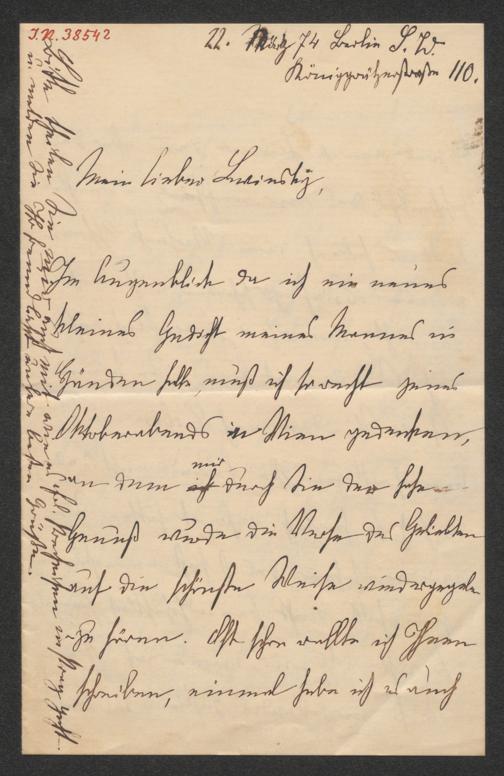 I.N. 38542
22. März 74 Berlin S.W.
Königgrätzerstraße 110.
Mein lieber Lewinsky,
Im Augenblick da ich ein neues
kleines Gedicht meines Mannes in
Händen halte, muß ich so recht jenes
Oktoberabends in Wien gedenken,
an dem mir durch Sie der hohe
Genuß wurde die Verse des Geliebten
auf die schönste Weise wiedergegeben
zu hören. Oft schon wollte ich Ihnen
schreiben, einmal habe ich es auch
Bitte theilen Sie mir mit
u. melden Sie Ihr
besten Grüße.